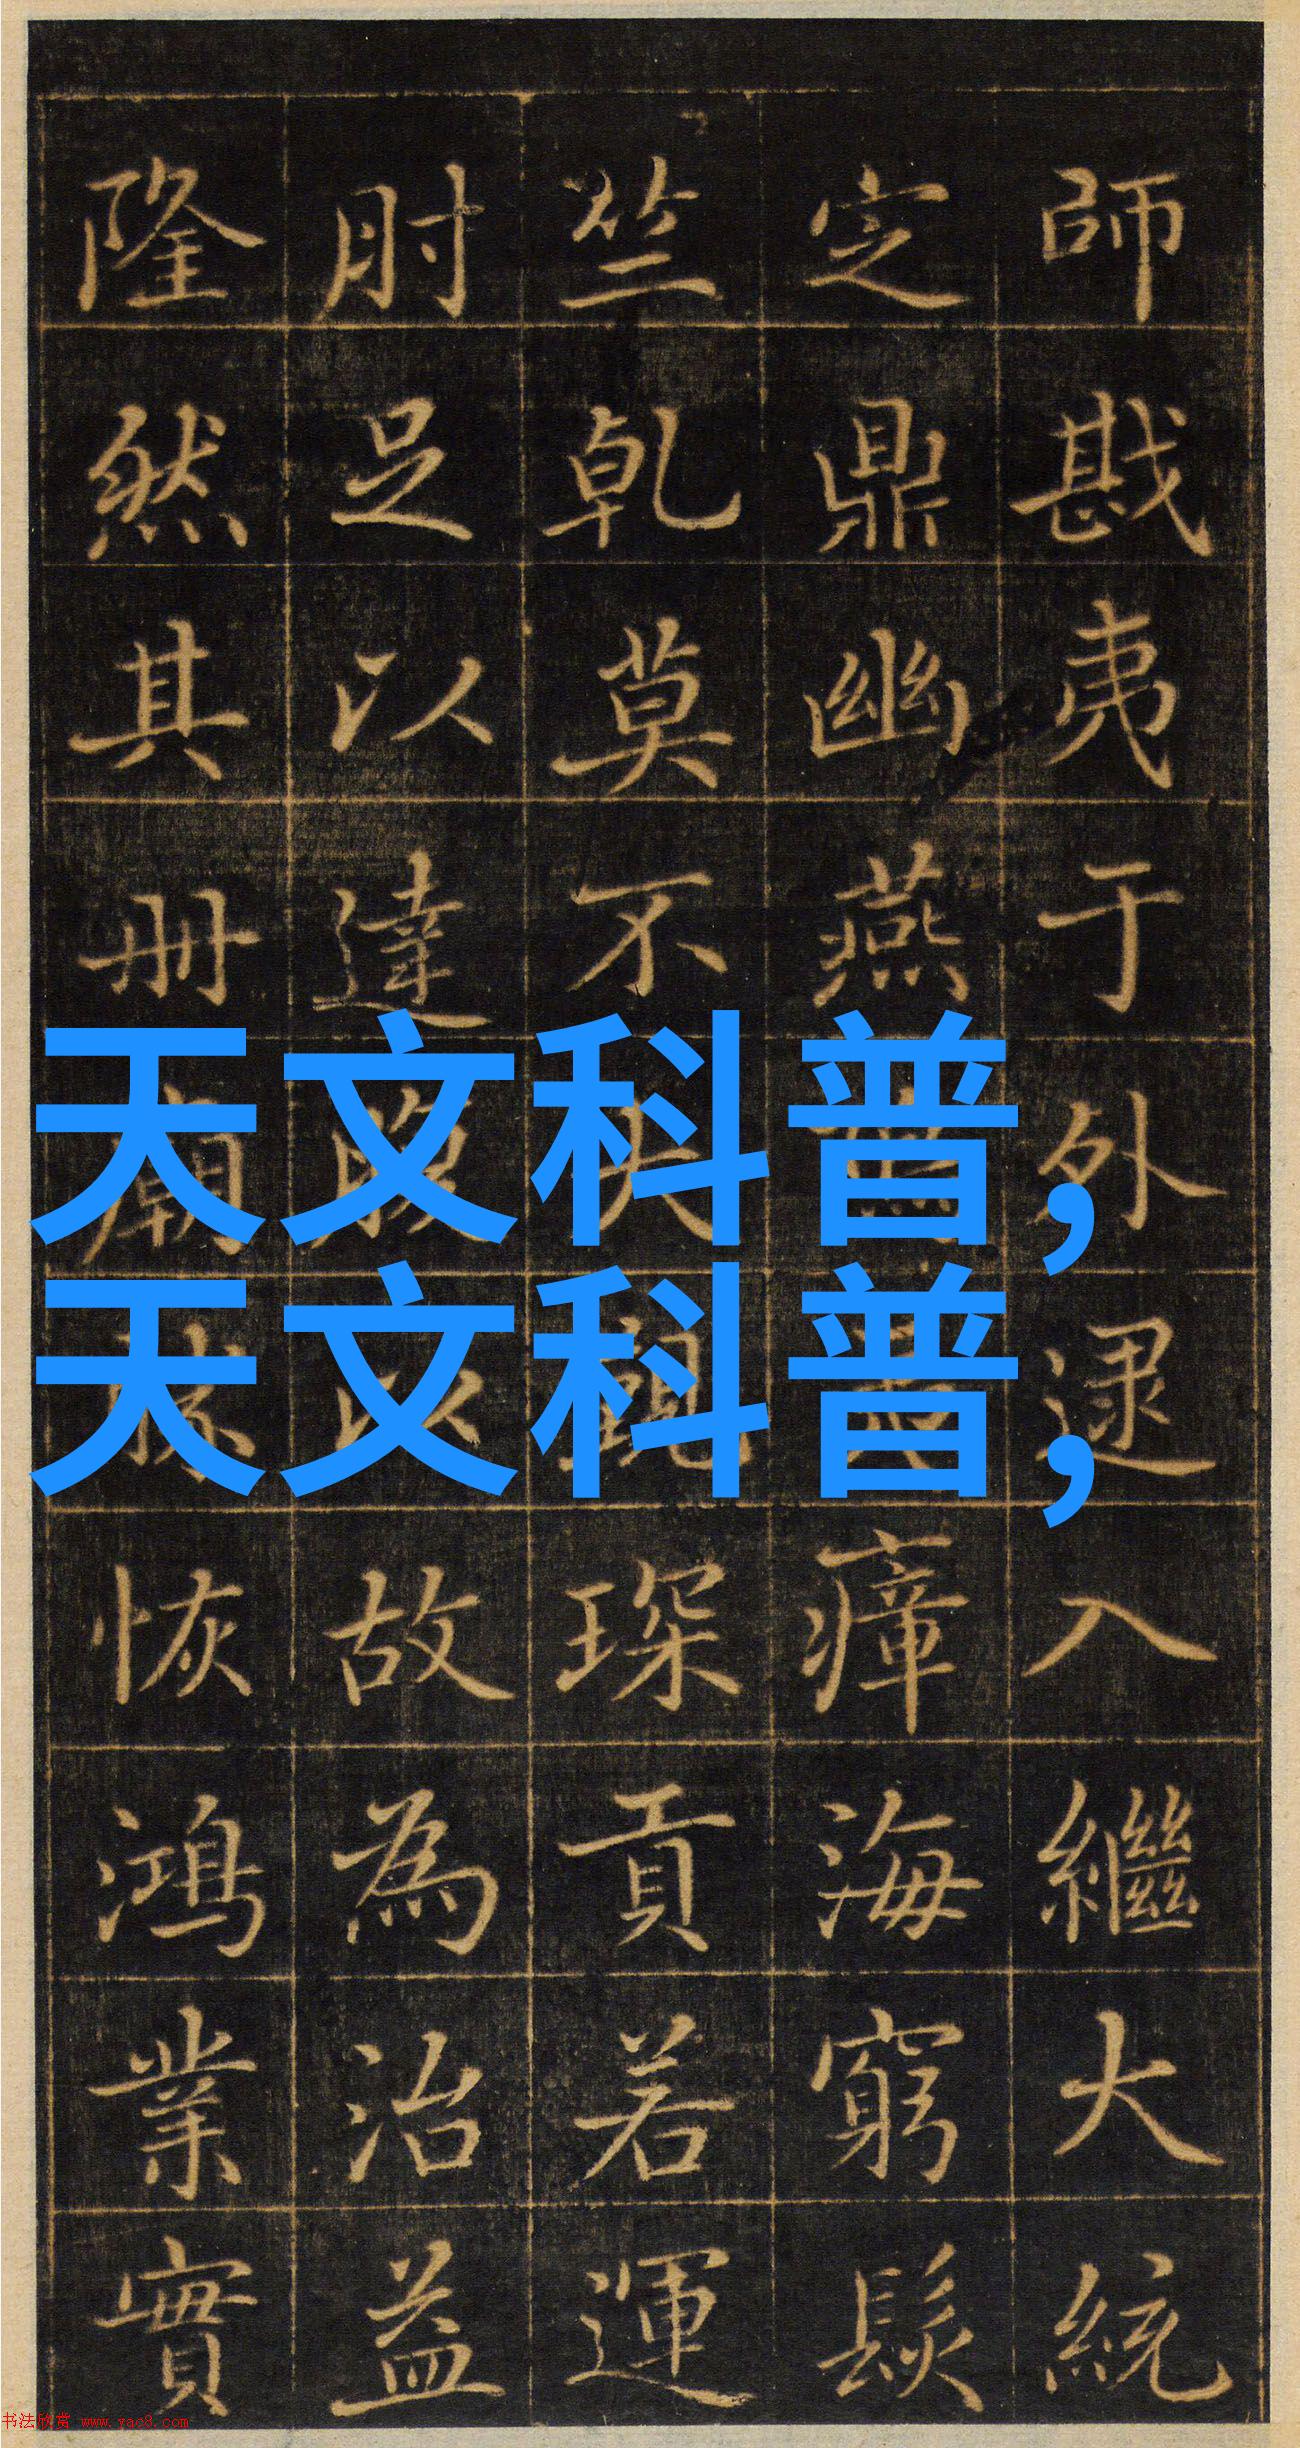 師戡夷于外逮入繼大統
定鼎幽燕瘴海窮髮
竺乾莫不琛貢若運
肘足以達腹以故為治益
隆然其冊廟恢鴻業實
天文科普,
天文科普,
书法欣赏 www.yac8.com